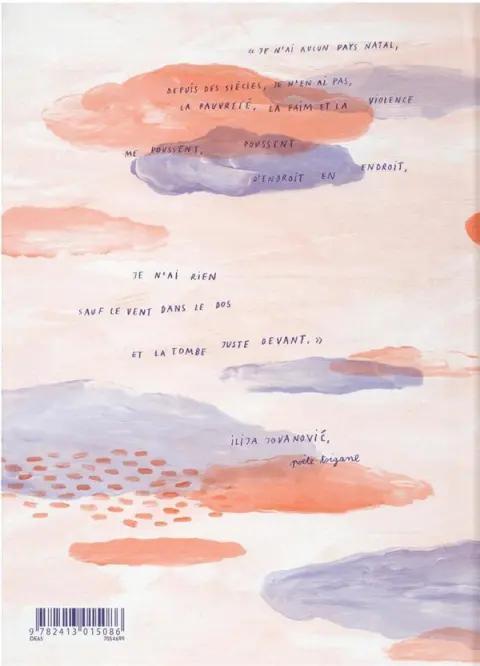 « JE N'AI AUCUN PAYS NATAL,
DEPUIS DES SIÈCLES, JE N'EN AI PAS,
LA PAUVRETÉ, LA FAIM ET LA VIOLENCE
ME POUSSENT, POUSSENT
D'ENDROIT EN ENDROIT,
JE N'AI RIEN
SAUF LE VENT DANS LE DOS
ET LA TOMBE JUSTE DEVANT. »
ILIJA JOVANOVIĆ,
poète tsigane
9 782413 015086
DEA5 7054699